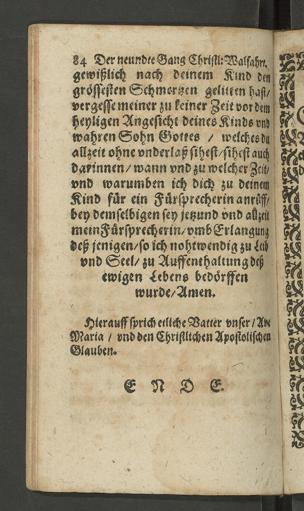 84 Der neundte Gang Christl: Walfahrt.
gewißlich nach deinem Kind den
grössesten Schmertzen gelitten hast/
vergesse meiner zu keiner Zeit vor dem
heyligen Angesicht deines Kinds vnd
wahren Sohn Gottes / welches du
allzeit ohne vnderlaß sihest/sihest auch
darinnen/wann vnd zu welcher Zeit/
vnd warumben ich dich zu deinem
Kind für ein Fürsprecherin anrüff/
bey demselbigen sey jetzund vnd allzeit
mein Fürsprecherin/vmb Erlangung
deß jenigen/so ich nohtwendig zu Leib
vnd Seel/zu Auffenthaltung deß
ewigen Lebens bedörffen
wurde/Amen.
Hierauff sprich etliche Vatter vnser/Ave
Maria / vnd den Christlichen Apostolischen
Glauben.
E N D E.